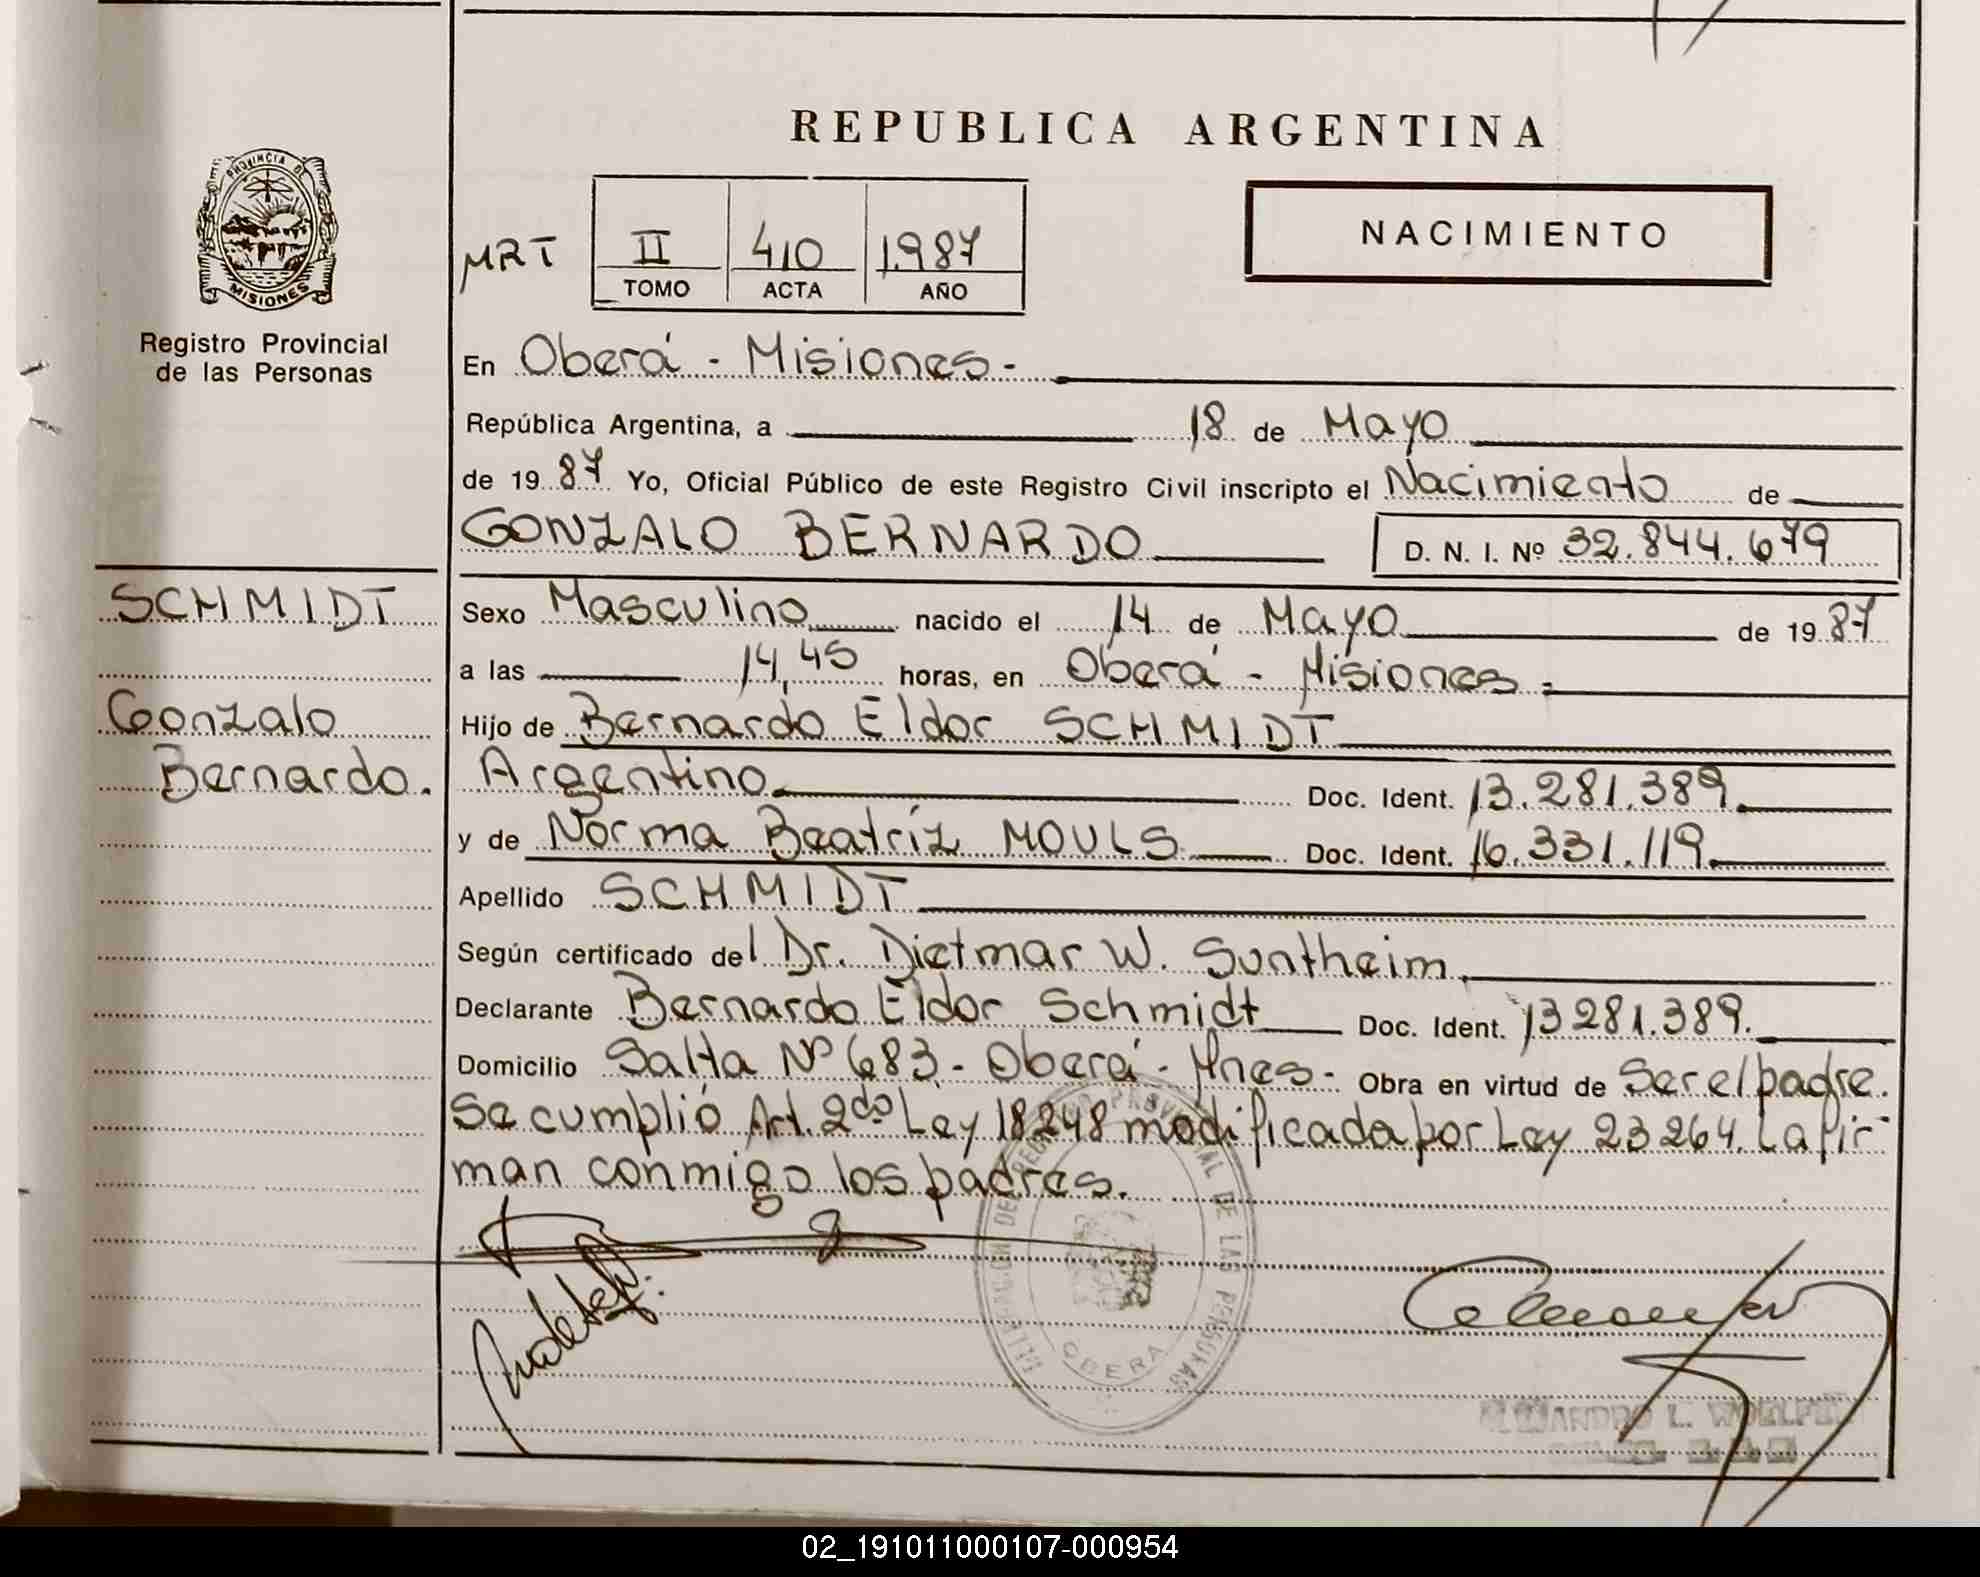 REPUBLICA ARGENTINA
PROVINCIA DE
MISIONES
Registro Provincial
de las Personas
NACIMIENTO
MRT II 410 1.987
TOMO ACTA AÑO
En Oberá - Misiones -
República Argentina, a 18 de Mayo
de 19 87 Yo, Oficial Público de este Registro Civil inscripto el Nacimiento de
GONZALO BERNARDO D. N. I. Nº 32.844.679
SCHMIDT
Gonzalo
Bernardo.
Sexo Masculino nacido el 14 de Mayo de 19 87
a las 14,45 horas, en Oberá - Misiones -
Hijo de Bernardo Eldor SCHMIDT
Argentino Doc. Ident. 13.281.389.
y de Norma Beatríz MOULS Doc. Ident. 16.331.119.
Apellido SCHMIDT
Según certificado del Dr. Dietmar W. Suntheim
Declarante Bernardo Eldor Schmidt Doc. Ident. 13281.389.
Domicilio Salta Nº 683 - Oberá - Mnes - Obra en virtud de Ser el padre.
Se cumplió Art. 2do Ley 18248 modificada por Ley 23264. La fir-
man conmigo los padres.
DELEGACION DEL REGISTRO PROVINCIAL DE LAS PERSONAS
OBERA
02_191011000107-000954